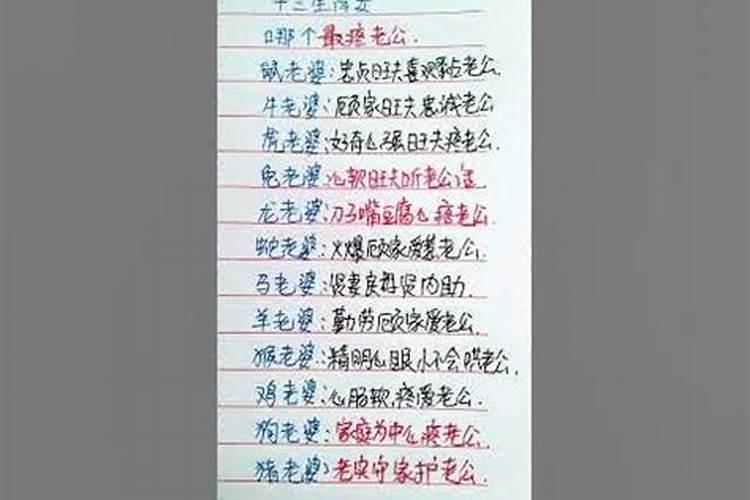 十二生肖女
哪个最疼老公.
鼠老婆:忠贞旺夫喜欢黏老公.
牛老婆:顾家旺夫忠诚老公
虎老婆:好奇心强旺夫疼老公.
兔老婆:心软旺夫听老公话.
龙老婆:刀子嘴豆腐心疼老公.
蛇老婆:火爆顾家爱慕老公.
马老婆:贤妻良母贤内助.
羊老婆:勤劳顾家爱老公.
猴老婆:精明心眼小不会哄老公.
鸡老婆:心肠软,疼爱老公.
狗老婆:家庭为中心疼老公.
猪老婆:老实守家护老公.